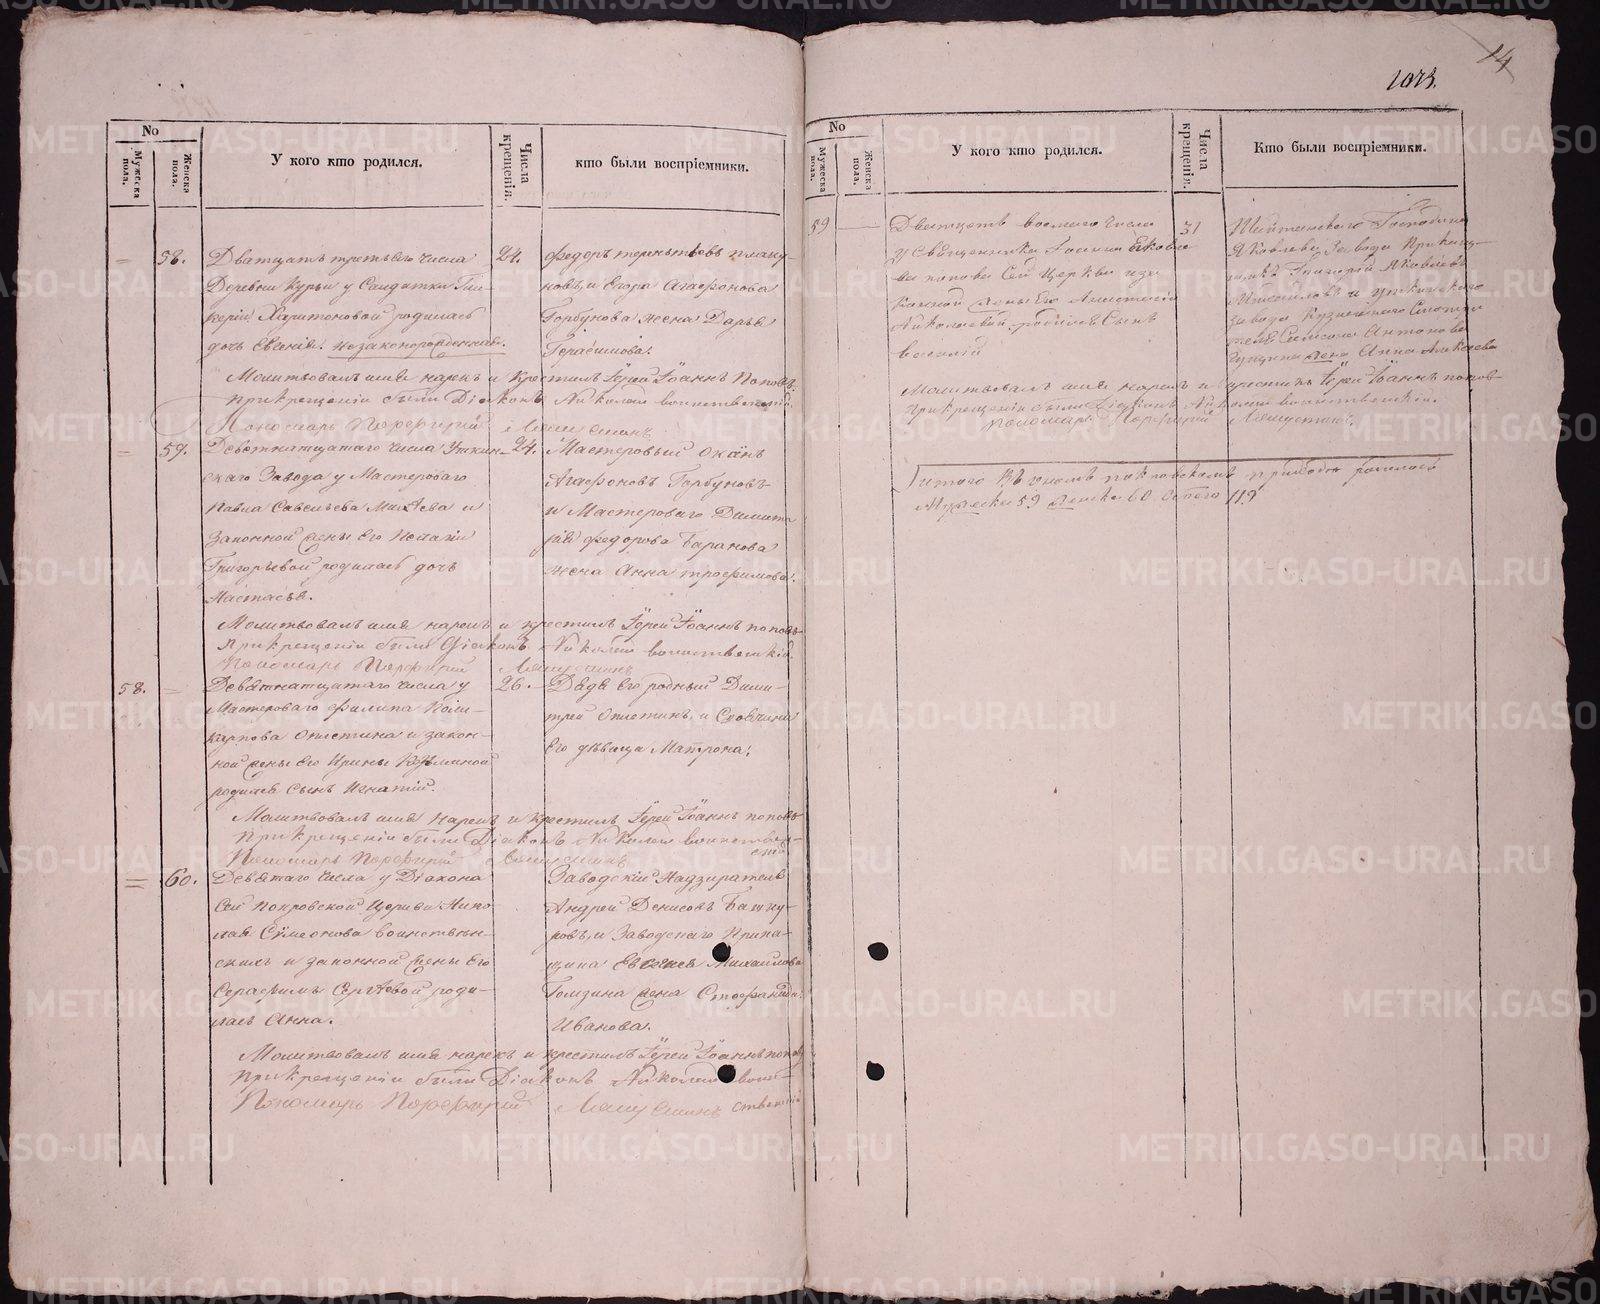 14
1073.
No
Мужеска пола.
Женска пола.
У кого кто родился.
Числа крещенія.
кто были воспріемники.
58.
Дватцать третьяго числа
Деревни Курьи у Салдатки Гли-
керіи Харитоновой родилась
дочь Евгенія. незаконорожденная.
24.
Федоръ терентьевъ плаку-
новъ, и Егора Агафонова
Горбунова жена Дарья
Герасимова.
Молитвовалъ имя нарекъ и крестилъ Іерей Іоаннъ Поповъ.
При крещеніи были Діаконъ Николай воинственскій.
Пономарь Порфирій
59.
Девятнатцатаго числа Уткин-
скаго Завода у Мастероваго
Павла Савельева и
законной жены Его Пелагіи
Григорьевой родилась дочь
Настасья.
24.
Мастеровый
Агафоновъ Горбуновъ
и Мастероваго Димит-
рія Федорова Баранова
жена Анна трофимова.
Молитвовалъ имя нарекъ и крестилъ Іерей Іоаннъ поповъ
При крещеніи были Діаконъ Николай воинственскій.
Пономарь Порфирій
58.
Девятнатцатаго числа у
Мастероваго Филипа Поли-
карпова Опистина и закон-
ной жены Его Ирины Козминой
родился сынъ Игнатій.
26.
Дядя Его родный Дими-
трей Опистинъ, и
Его дѣвица Матрона.
Молитвовалъ имя нарекъ и крестилъ Іерей Іоаннъ поповъ
При крещеніи были Діаконъ Николай воинствен-
скій
Пономарь Порфирій
60.
Девятаго числа у Діакона
Сей Покровской Церкви Нико-
лая Сѵмеонова воинствен-
скаго и законной жены Его
Серафимы Сергѣевой роди-
лась Анна.
Заводскій Надзиратель
Андрей Денисовъ Башку-
ровъ, и Заводскаго Прика-
щика Евгенія Михаилова
Голдина жена Стефанида
Иванова.
Молитвовалъ имя нарекъ и крестилъ Іерей Іоаннъ поповъ
При крещеніи были Діаконъ Николай воин-
Пономарь Порфирій ственскій
No
Мужеска пола.
Женска пола.
У кого кто родился.
Числа крещенія.
Кто были воспріемники.
59
Дватцать восмаго числа
у Священника Іоанна Яковле-
ва попова Сей Церкви и за-
конной жены Его Анастасіи
Николаевой, родился Сынъ
василій
31
Шайтанского Господина
Яковлева Завода Прикащ-
икъ Григорій Яковлевъ
и уткинского
завода
Антонова
жена Анна Алексеева
Молитвовалъ имя нарекъ и крестилъ Іерей Іоаннъ попов-
При крещеніи были Діаконъ Николай воинственскій.
Пономарь Порфирій
итого въ ономъ покровскомъ приходе родилось
Мужеска 59 женска 60 обоего 119
METRIKI.GASO-URAL.RU